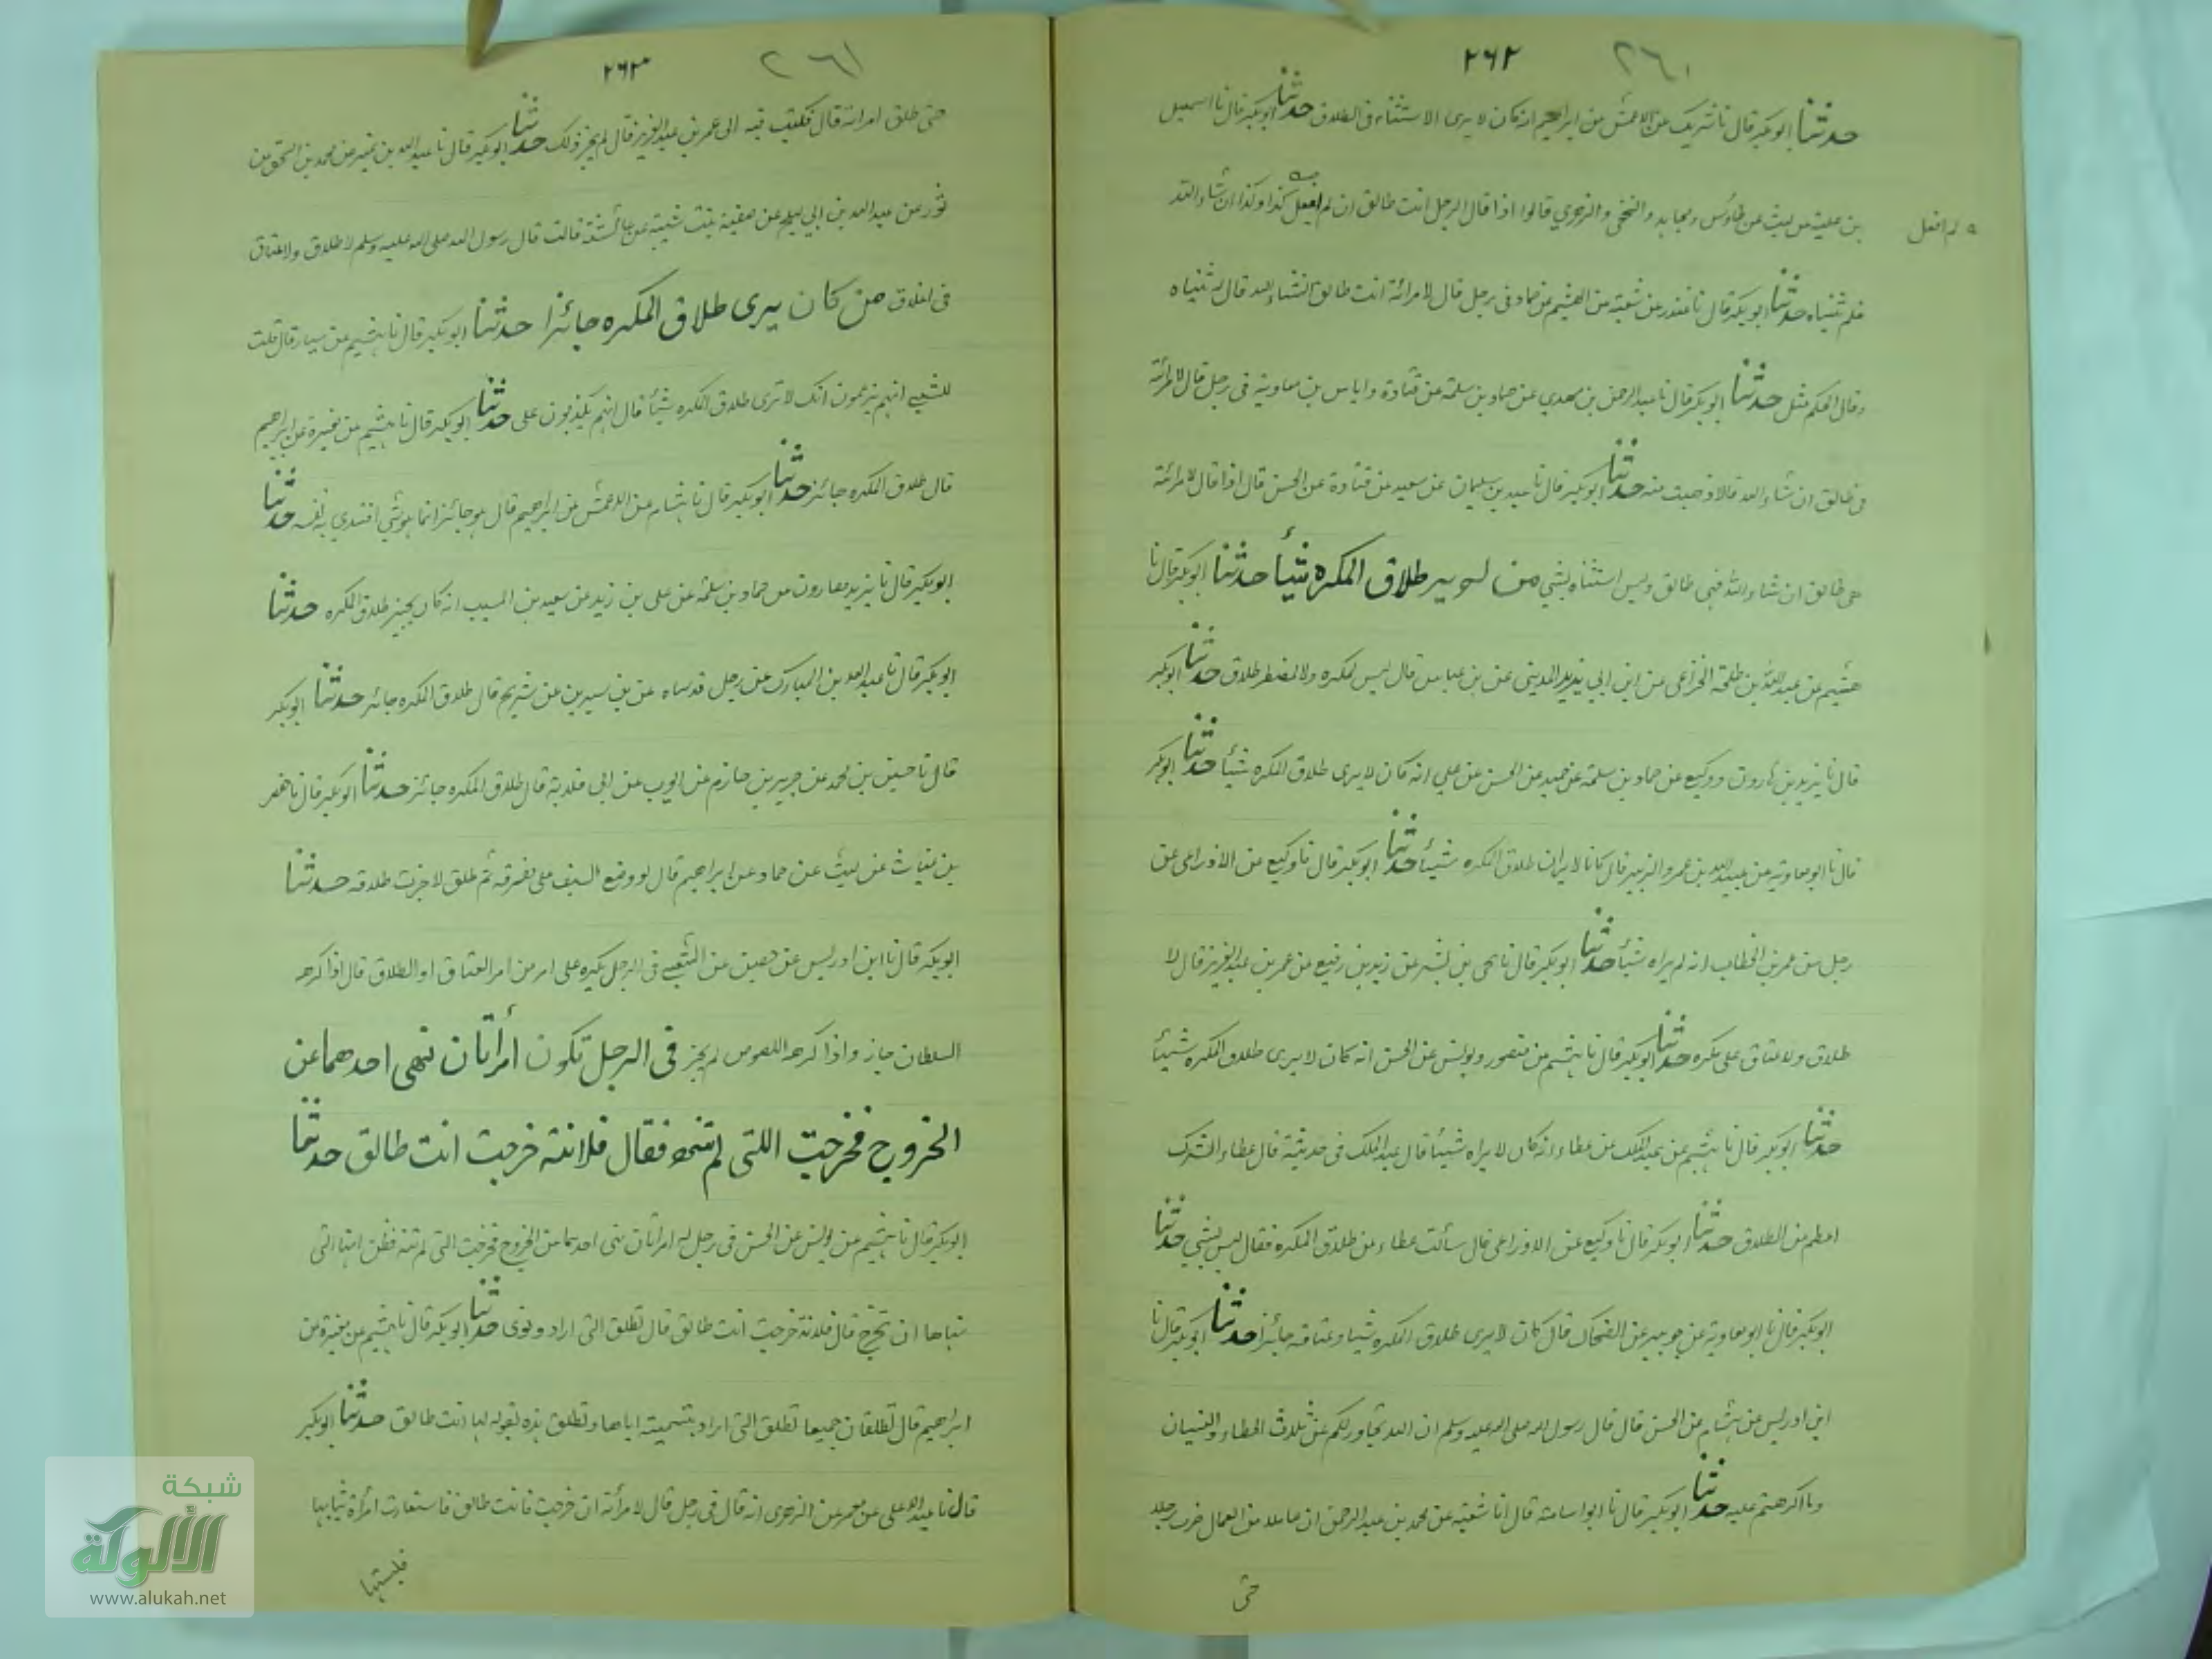 ٢٦٢ ٢٦١
حدثنا ابوبكر قال نا شريك عن الاعمش عن ابراهيم انه كان لا يرى الاستثناء في الطلاق حدثنا ابوبكر قال نا اسمعيل
بن علية عن ليث عن طاؤس ومجاهد والنخعي والزهري قالوا اذا قال الرجل انت طالق ان لم يفعل كذا وكذا ان شاء الله
لم افعل
فلم ثنياه حدثنا ابوبكر قال نا غندر عن شعبة عن الهيثم عن حماد في رجل قال لامرأته انت طالق انشاء الله قال له ثنياه
وقال الحكم مثل حدثنا ابوبكر قال نا عبد الرحمن بن مهدي عن حماد بن سلمة عن قتادة واياس بن معاوية في رجل قال لامرأته
في طالق ان شاء الله قالا ذهبت منه حدثنا ابوبكر قال نا عبيد بن سليمان عن سعيد عن قتادة عن الحسن قال اذا قال لامرأته
هي طالق ان شاء الله فهي طالق وليس استثناه بشي من لم ير طلاق المكره شيأ حدثنا ابوبكر قال نا
هشيم عن عبد الله بن طلحة الخزاعي عن ابن ابي يزيد المديني عن بن عباس قال ليس لمكره ولا لمضطر طلاق حدثنا ابوبكر
قال نا يزيد بن هارون ووكيع عن حماد بن سلمة عن حميد عن الحسن عن علي انه كان لا يرى طلاق المكره شيأ حدثنا ابوبكر
قال نا ابو معاوية عن عبيد الله بن عمر والزبير قال كانا لا يريان طلاق المكره شيأ حدثنا ابوبكر قال نا وكيع عن الاوزاعي عن
رجل عن عمر بن الخطاب انه لم يراه شيأ حدثنا ابوبكر قال نا يحي بن بشر عن زيد بن رفيع عن عمر بن عبد العزيز قال لا
طلاق ولا عتاق على مكره حدثنا ابوبكر قال نا هشيم عن منصور ويونس عن الحسن انه كان لا يرى طلاق المكره شيأ
حدثنا ابوبكر قال نا هشيم عن عبد الملك عن عطاء انه كان لا يراه شيئا قال عبد الملك في حديثه قال عطاء الشرك
اعظم من الطلاق حدثنا ابوبكر قال نا وكيع عن الاوزاعي قال سألت عطاء عن طلاق المكره فقال ليس بشي حدثنا
ابوبكر قال نا ابو معاوية عن جويبر عن الضحاك قال كان لا يرى طلاق المكره شيئا وعتاقه جائزا حدثنا ابوبكر قال نا
ابن ادريس عن هشام عن الحسن قال قال رسول الله صلى الله عليه وسلم ان الله تجاوز لكم عن ثلاث الخطاء والنسيان
وما اكرهتم عليه حدثنا ابوبكر قال نا ابو اسامة قال انا شعبة عن محمد بن عبد الرحمن ان عاملا من العمال ضرب رجلا
حتى
٢٦٣ ٢٦١
حتى طلق امرأته قال فكتب فيه الى عمر بن عبد العزيز قال لم يجز ذلك حدثنا ابوبكر قال نا عبد الله بن نمير عن محمد بن اسحق بن
ثور عن عبد الله بن ابي صالح عن صفية بنت شيبة عن عائشة قالت قال رسول الله صلى الله عليه وسلم لا طلاق ولا عتاق
في اغلاق من كان يرى طلاق المكره جائزا حدثنا ابوبكر قال نا هشيم عن سيار قال قلت
للشعبي انهم يزعمون انك لا ترى طلاق المكره شيأ قال انهم يكذبون على حدثنا ابوبكر قال نا هشيم عن مغيرة عن ابراهيم
قال طلاق المكره جائز حدثنا ابوبكر قال نا هشام عن الاعمش عن ابراهيم قال هو جائز انما هو شي افتدي به نفسه حدثنا
ابوبكر قال نا يزيد هارون عن حماد بن سلمة عن على بن زيد عن سعيد بن المسيب انه كان يجيز طلاق المكره حدثنا
ابوبكر قال نا عبد الله بن المبارك عن رجل قد سماه عن بن سيرين عن شريح قال طلاق المكره جائز حدثنا ابوبكر
قال نا حسين بن محمد عن جرير بن حازم عن ايوب عن ابي قلابة قال طلاق المكره جائز حدثنا ابوبكر قال نا حفر
بن غياث عن ليث عن حماد عن ابراهيم قال لو وضع السيف على مفرقه ثم طلق لاجزت طلاقه حدثنا
ابوبكر قال نا ابن ادريس عن حصين عن الشعبي في الرجل يكره على امر من امر العتاق او الطلاق قال اذا كرهه
السلطان جاز واذا كرهه اللصوص لم يجز في الرجل تكون امرأتان نهى احدهما عن
الخروج فخرجت اللتى لم تنه فقال فلانة خرجت انت طالق حدثنا
ابوبكر قال نا هشيم عن يونس عن الحسن في رجل له امرأتان نهى احدهما عن الخروج فخرجت التي لم تنه فظن انها التي
نهاها ان تخرج قال فلانة خرجت انت طالق قال تطلق التي اراد ونوى حدثنا ابوبكر قال نا هشيم عن مغيرة عن
ابراهيم قال تطلقان جميعا تطلق التي اراد بتسميته اياها وتطلق هذه بقوله لها انت طالق حدثنا ابوبكر
قال نا عبد الاعلى عن معمر عن الزهري انه قال في رجل قال لامرأته ان خرجت فانت طالق فاستعارت امرأة ثيابها
فلبستها
شبكة
الألوكة
www.alukah.net